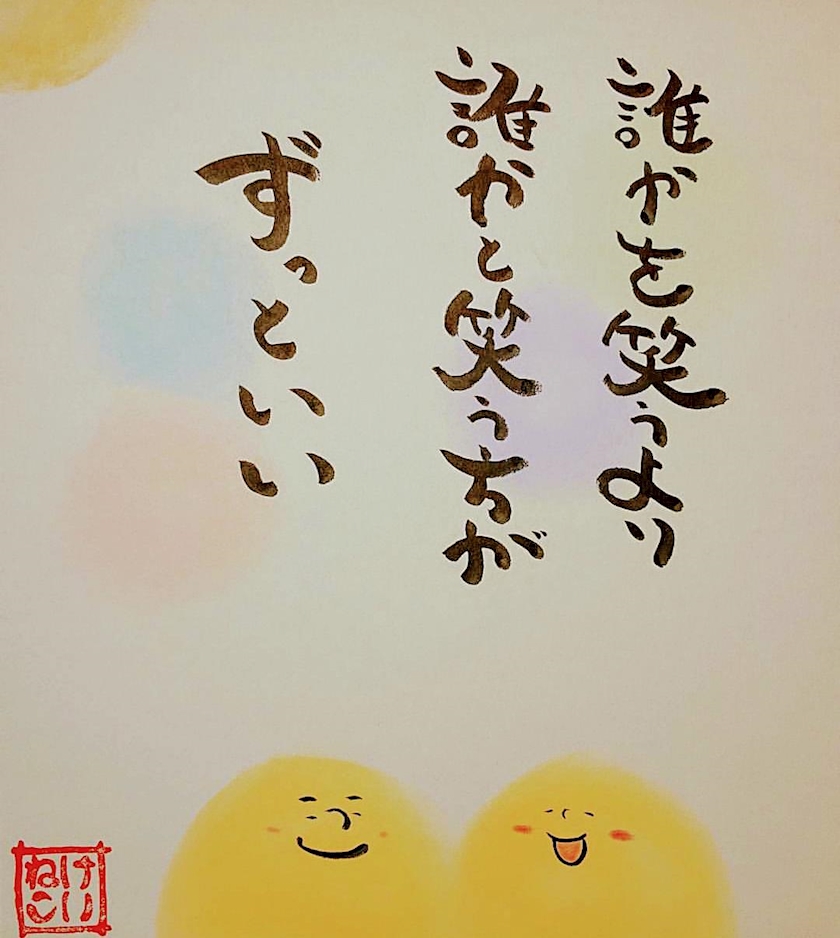 誰かを笑うより
誰かと笑う方が
ずっといい
けい
ねこ